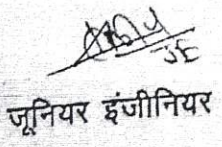 JE
जूनियर इंजीनियर